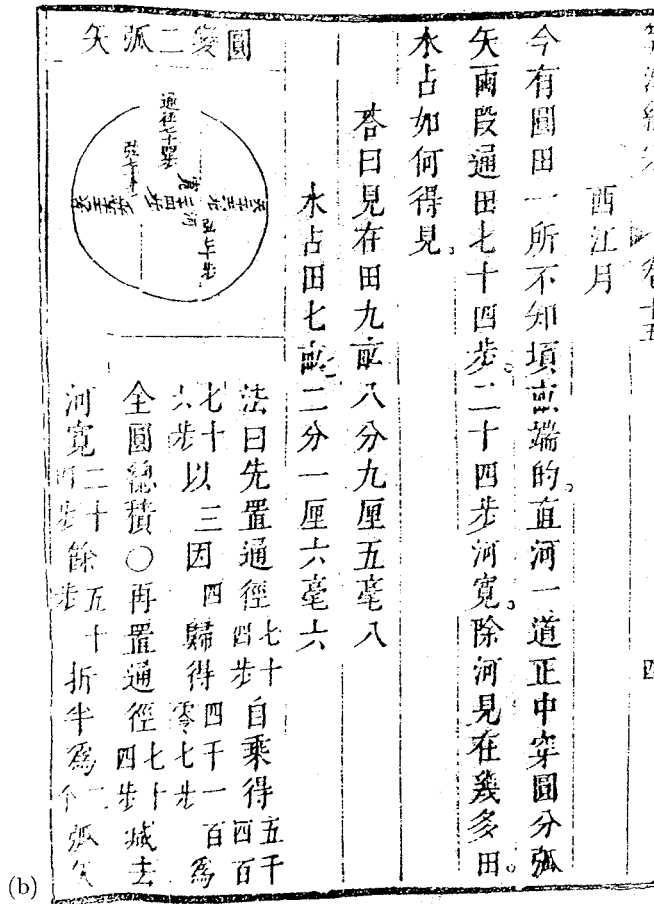 卷十五
四
西江月
今有圓田一所不知頃畝端的。直河一道正中穿圓分弧
矢兩段通田七十四步。二十四步河寬。除河見在幾多田。
水占如何得見。
荅曰見在田九畝八分九厘五毫八
水占田七畝二分一厘六毫六
法曰先置通徑七十四步自乘得五千四百
七十六步以三因四歸得四千一百零七步爲
全圓總積〇再置通徑七十四步減去
河寬二十四步餘五十步折半爲二弧矢
圓變二弧矢
通徑七十四步
(b)